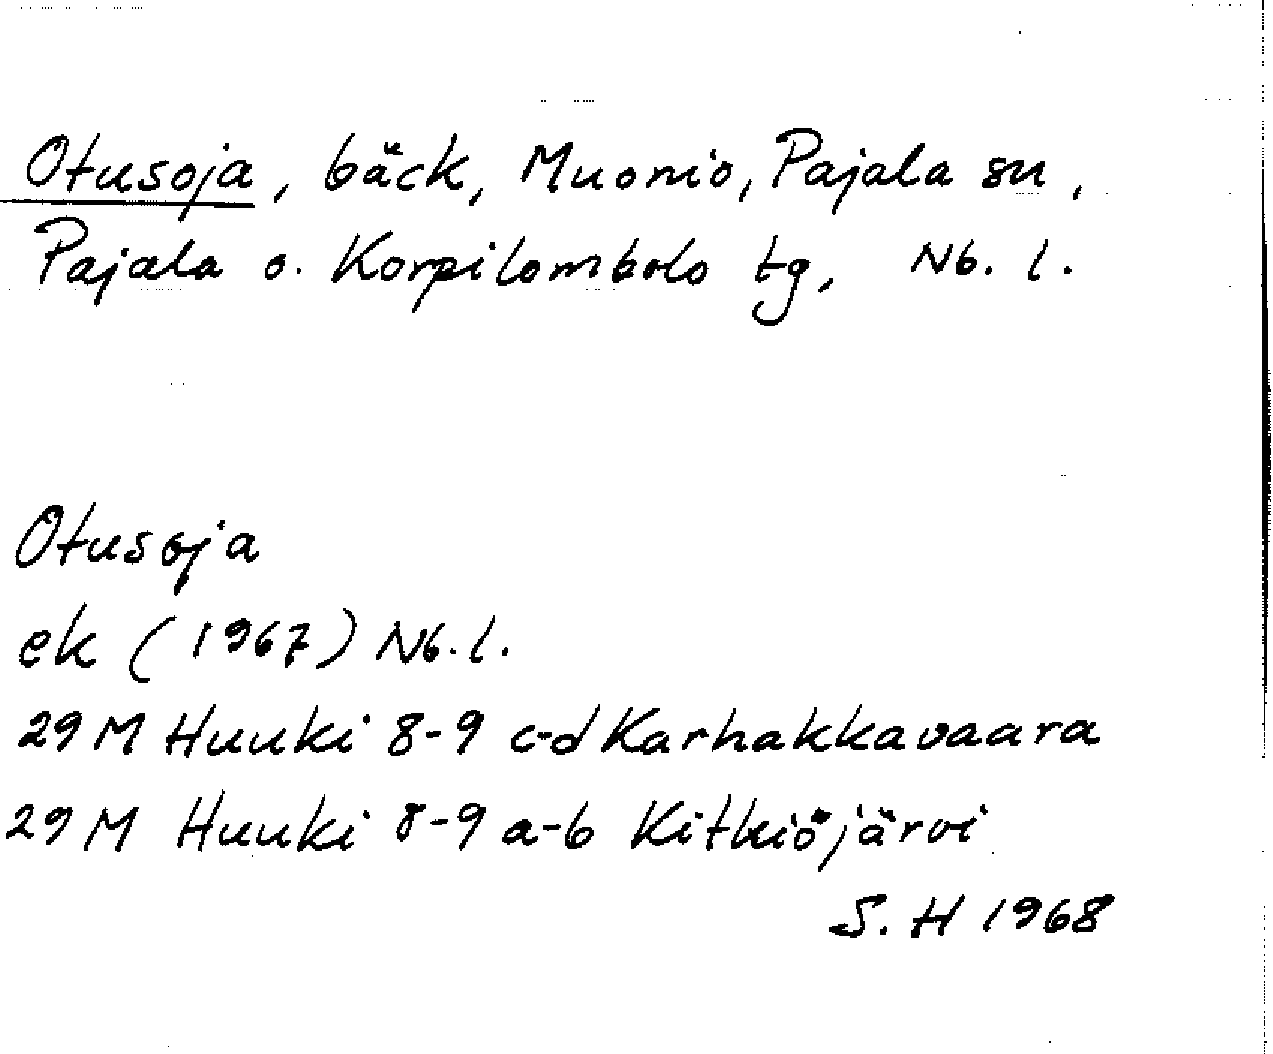 Otusoja, bäck, Muonio, Pajala sn,
Pajala o. Korpilombolo tg, Nb. l.
Otusoja
ek (1967) Nb. l.
29 M Huuki 8-9 c-d Karhakkavaara
29 M Huuki 8-9 a-b Kitkiöjärvi
S. H 1968